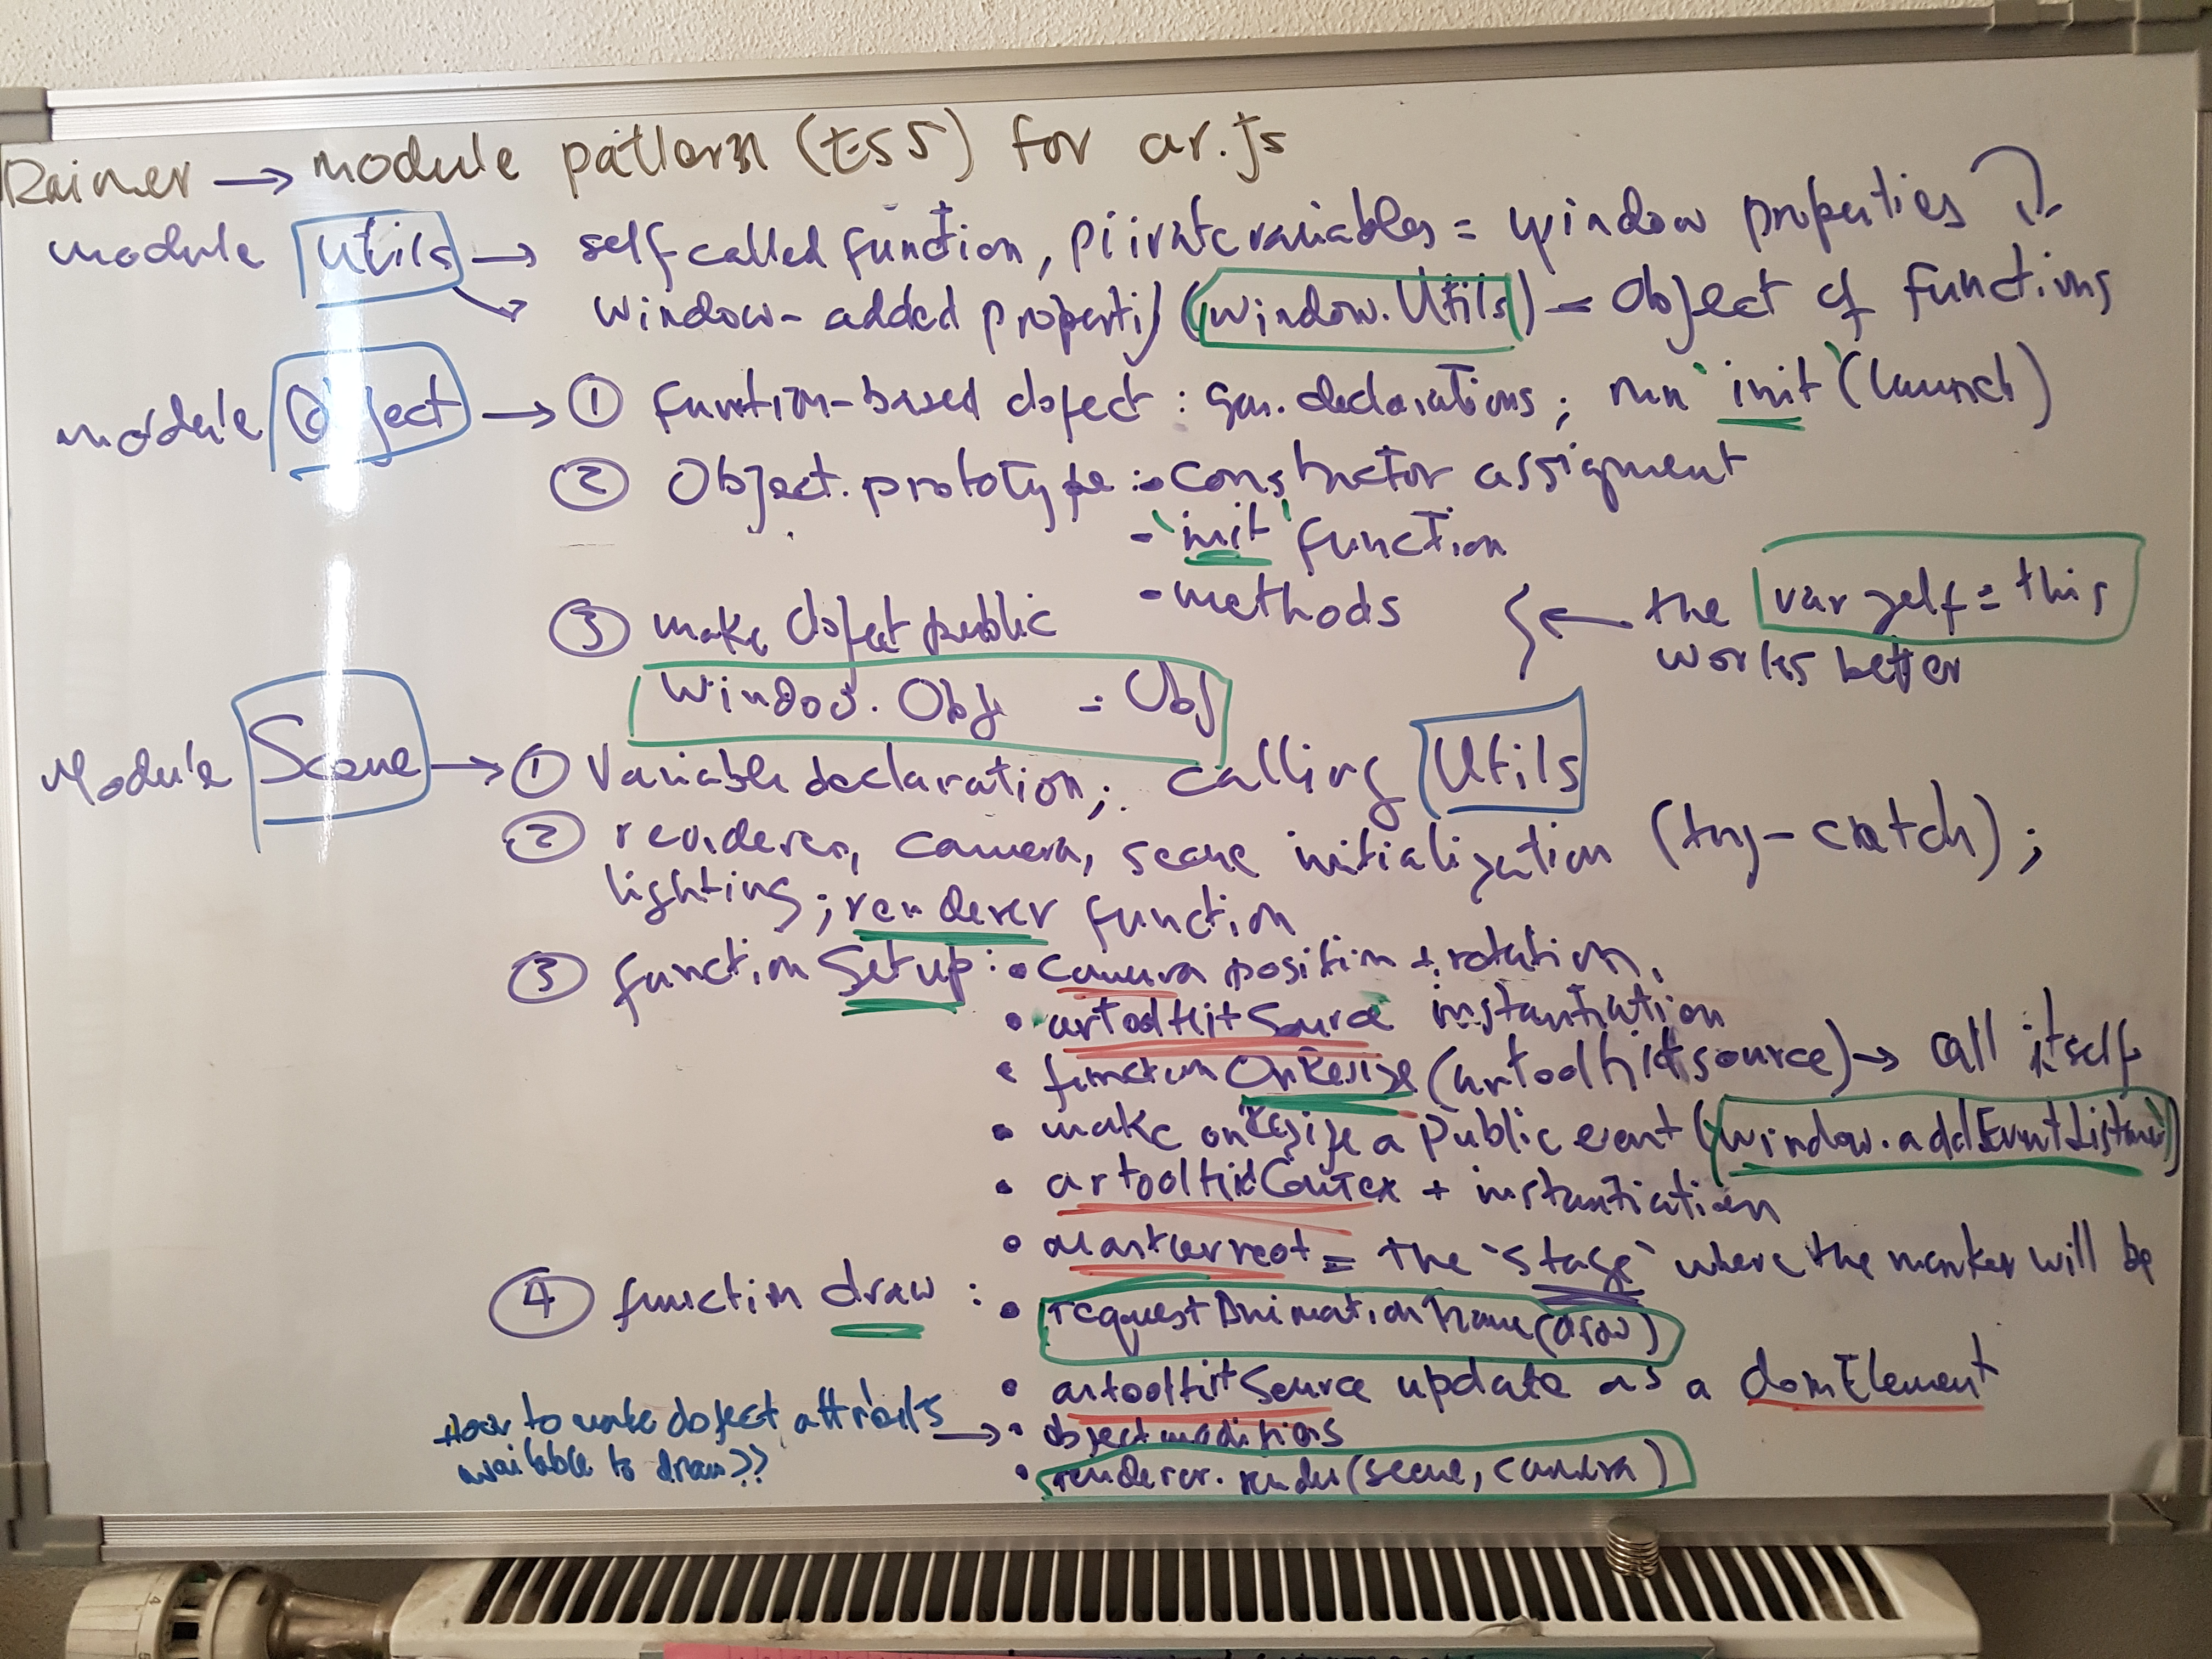 Rainer → module pattern (ES5) for ar.js
module Utils → self called function, private variables = window properties
window-added property (window.Utils) = Object of functions
module Object → ① function-based object : declarations; run `init` (launch)
② Object.prototype : - constructor assigment
- `init` function
- methods
③ make object public
the var self = this
works better
Window.Obj = Obj
Module Scene → ① Variable declaration; calling Utils
② renderer, camera, scene initialization (try-catch);
lighting; renderer function
③ function Setup : • camera position + rotation.
• artoolkitSource instantiation
• function OnResize (artoolkitsource) → call itself
• make onResize a public event (window.addEventListener)
• artoolkitContex + instantiation
• markerroot = the `stage` where the marker will be
④ function draw : • requestAnimationFrame(draw)
• artoolkitSource update as a domElement
How to make object attributs → • object modifions
available to draw??
• renderer.render(scene, camera)